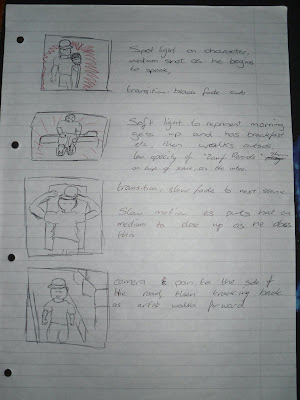 Spot light on character,
medium shot as he begins
to speak,
transition: black fade out
Soft light to represent morning
gets up and has breakfast
etc, then walks outside,
low opacity of "
on top of scene, as the intro.
transition, slow fade to next scene
Slow motion as puts hat on
medium to close up as he does
this
camera pan to the side of
the road, then tracking back
as artist walks forward